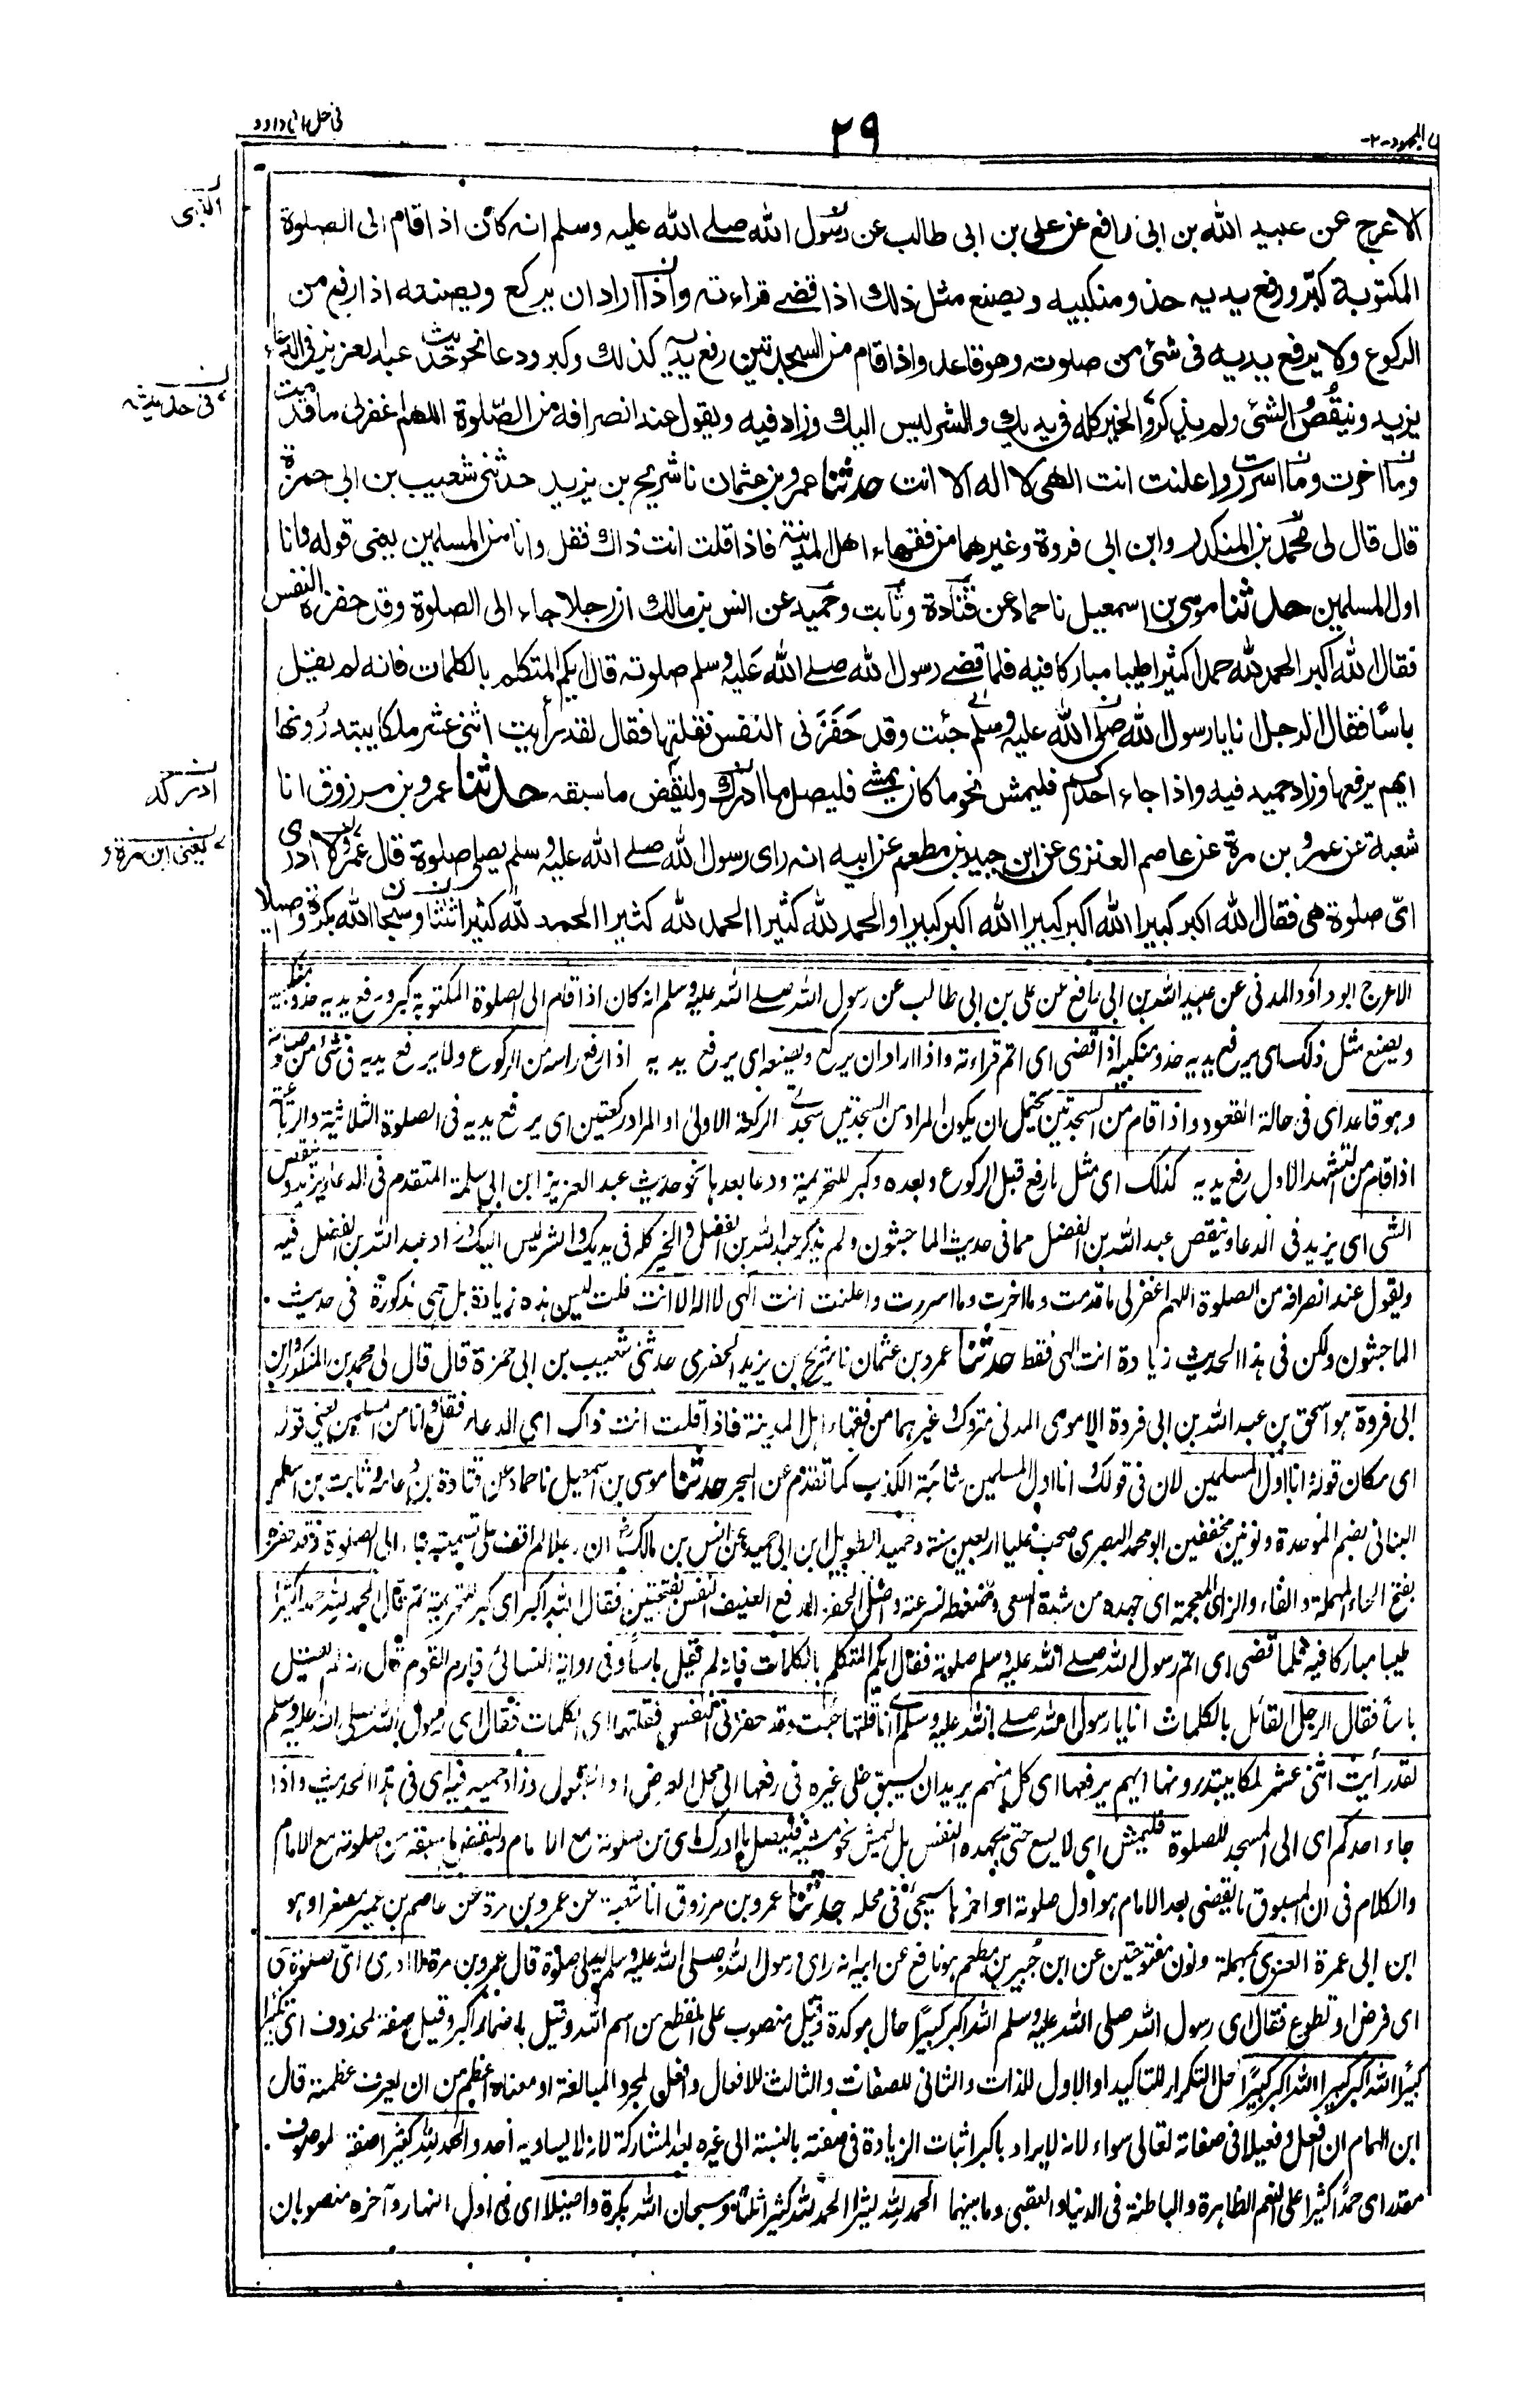 فى حل ابى داود
٢٩
المجهود-٢-
الاعرج عن عبيد الله بن ابى رافع عن على بن ابى طالب عن رسول الله صلے الله عليه وسلم انه كان اذا قام الى الصلوة
المكتوبة كبّر ورفع يديه حذو منكبيه ويصنع مثل ذلك اذا قضے قراءته واذا اراد ان يركع ويصنعه اذا رفع من
الركوع ولا يرفع يديه فى شئ من صلوته وهو قاعد واذا قام من السجدتين رفع يديه كذلك وكبر ودعا نحو حديث عبد العزيز فى الدعاء
يزيد وينقُصُ الشئ ولم يذكر والخير كله فى يديك والشر ليس اليك وزاد فيه ويقول عند انصرافه من الصّلوة اللهم اغفر لى ما قدمت
وما اخرت وما اسررت واعلنت انت الهى لا اله الا انت حدثنا عمرو بن عثمان نا شريح بن يزيد حدثنى شعيب بن ابى حمزة
قال قال لى محمد بن المنكدر وابن ابى فروة وغيرهما من فقهاء اهل المدينة فاذا قلت انت ذاك فقل وانا من المسلمين يعنى قوله وانا
اول المسلمين حدثنا موسى بن اسمعيل نا حماد عن قتادة وثابت وحميد عن انس بن مالك ان رجلا جاء الى الصلوة وقد حفزه النفس
فقال الله اكبر الحمد لله حمدا كثيرا طيبا مباركا فيه فلما قضے رسول الله صلے الله عليه وسلم صلوته قال ايكم المتكلم بالكلمات فانه لم يقل
باسًا فقال الرجل انا يا رسول الله صلى الله عليه وسلم جئت وقد حَفَزَنى النفس فقلتها فقال لقد رأيت اثنى عشر ملكا يبتدرُونها
ايهم يرفعها وزاد حميد فيه واذا جاء احدكم فليمش نحو ما كان يمشے فليصل ما ادرك وليقض ما سبقه حدثنا عمرو بن مرزوق انا
شعبة عن عمرو بن مرة عن عاصم العنزى عن ابن جبير بن مطعم عن ابيه انه راى رسول الله صلے الله عليه وسلم يصلى صلوة قال عمرو لا ادرى
اىّ صلوة هى فقال الله اكبر كبيرا الله اكبر كبيرا الله اكبر كبيرا والحمد لله كثيرا الحمد لله كثيرا الحمد لله كثيرا ثلثا وسبحان الله بكرة واصيلا
النبى
فى حديثه
ادركه
يعنى ابن مرة و
الاعرج ابو داؤد المدنى عن عبيد الله بن ابى رافع عن على بن ابى طالب عن رسول الله صلے الله عليه وسلم انه كان اذا قام الى الصلوة المكتوبة كبر ورفع يديه حذو منكبيه
ويصنع مثل ذلك اى يرفع يديه حذو منكبيه اذا قضى اى اتم قراءته واذا اراد ان يركع ويصنعه اى يرفع يديه اذا رفع راسه من الركوع ولا يرفع يديه فى شئ من صلوته
وهو قاعد اى فى حالة القعود واذا قام من السجدتين يحتمل ان يكون المراد من السجدتين سجدتے الركعة الاولى او المراد ركعتين اى يرفع يديه فى الصلوة الثلاثية والرباعية
اذا قام من التشهد الاول رفع يديه كذلك اى مثل ما رفع قبل الركوع وبعده وكبر للتحريمة ودعا بعدها نحو حديث عبد العزيز ابن ابى سلمة المتقدم فى الدعاء يزيد وينقص
الشى اى يزيد فى الدعاء وينقص عبد الله بن الفضل مما فى حديث الماجشون ولم يذكر عبد الله بن الفضل والخير كله فى يديك والشر ليس اليك وزاد عبد الله بن الفضل فيه
ويقول عند انصرافه من الصلوة اللهم اغفر لى ما قدمت وما اخرت وما اسررت واعلنت انت الهى لا اله الا انت قلت ليس هذه زيادة بل هى مذكورة فى حديث
الماجشون ولكن فى هذا الحديث زيادة انت الهى فقط حدثنا عمرو بن عثمان نا شريح بن يزيد الحضرمى حدثنى شعيب بن ابى حمزة قال قال لى محمد بن المنكدر وابن
ابى فروة هو اسحق بن عبد الله بن ابى فروة الاموى المدنى متروك وغيرهما من فقهاء اهل المدينة فاذا قلت انت ذاك اى الدعاء فقل وانا من المسلمين يعنى قوله
اى مكان قوله انا اول المسلمين لان فى قولك انا اول المسلمين شائبة الكذب كما تقدم عن البحر حدثنا موسى بن اسمعيل نا حماد عن قتادة بن دعامة وثابت بن اسلم
البنانى بضم الموحدة ونونين مخففين ابو محمد البصرى صحب عليا اربعين سنة وحميد الطويل ابن ابى حميد عن انس بن مالك ان رجلا لم اقف على تسميته جاء الى الصلوة وقد حفزه
بفتح الحاء المهملة والفاء والزاى المعجمة اى جهده من شدة السعى وضغطه لسرعته واصل الحفز الدفع العنيف النفس بفتحتين فقال الله اكبر اى كبر للتحريمة ثم قال الحمد لله حمدا كثيرا
طيبا مباركا فيه فلما قضى اى اتم رسول الله صلے الله عليه وسلم صلوته فقال ايكم المتكلم بالكلمات فانه لم يقل باسا وفى رواية النسائى فارم القوم قال انه لم يقل
باسا فقال الرجل القائل بالكلمات انا يا رسول الله صلے الله عليه وسلم اى انا قلتها جئت وقد حفزنى النفس فقلتها اى الكلمات فقال اى رسول الله صلى الله عليه وسلم
لقد رأيت اثنى عشر ملكا يبتدرونها ايهم يرفعها اى كل منهم يريد ان يسبق على غيره فى رفعها الى محل العرض او القبول وزاد حميد فيه اى فى هذا الحديث واذا
جاء احدكم اى الى المسجد للصلوة فليمش اى لا يسع حتى يجهده النفس بل ليمش نحو مشيه فليصل ما ادرك اى من صلوته مع الامام وليقض ما سبقه من صلوته مع الامام
والكلام فى ان المسبوق ما يقضى بعد الامام هو اول صلوته او اخرها سيجئ فى محله حدثنا عمرو بن مرزوق انا شعبة عن عمرو بن مرة عن عاصم بن عمير مصغرا وهو
ابن ابى عمرة العنزى بمهملة ونون مفتوحتين عن ابن جبير بن مطعم هو نافع عن ابيه انه راى رسول الله صلى الله عليه وسلم يصلى صلوة قال عمرو بن مرة لا ادرى اىّ صلوة هى
اى فرض او تطوع فقال اى رسول الله صلى الله عليه وسلم الله اكبر كبيرًا حال موكدة وقيل منصوب على القطع من اسم الله وقيل باضمار اكبر وقيل صفة لمحذوف اى تكبيرا
كبيرا الله اكبر كبيرا الله اكبر كبيرًا حمل التكرار للتاكيد او الاول للذات والثانى للصفات والثالث للافعال وافعل لمجرد المبالغة او معناه اعظم من ان يعرف عظمته قال
ابن الهمام ان افعل وفعيلا فى صفاته تعالى سواء لانه لا يراد باكبر اثبات الزيادة فى صفته بالنسبة الى غيره بعد المشاركة لانه لا يساويه أحد والحمد لله كثيرا صفة لموصوف
مقدر اى حمدًا كثيرا على النعم الظاهرة والباطنة فى الدنيا والعقبى وما بينهما الحمد لله كثيرا الحمد لله كثيرا ثلثا وسبحان الله بكرة واصيلا اى فى اول النهار وآخره منصوبان